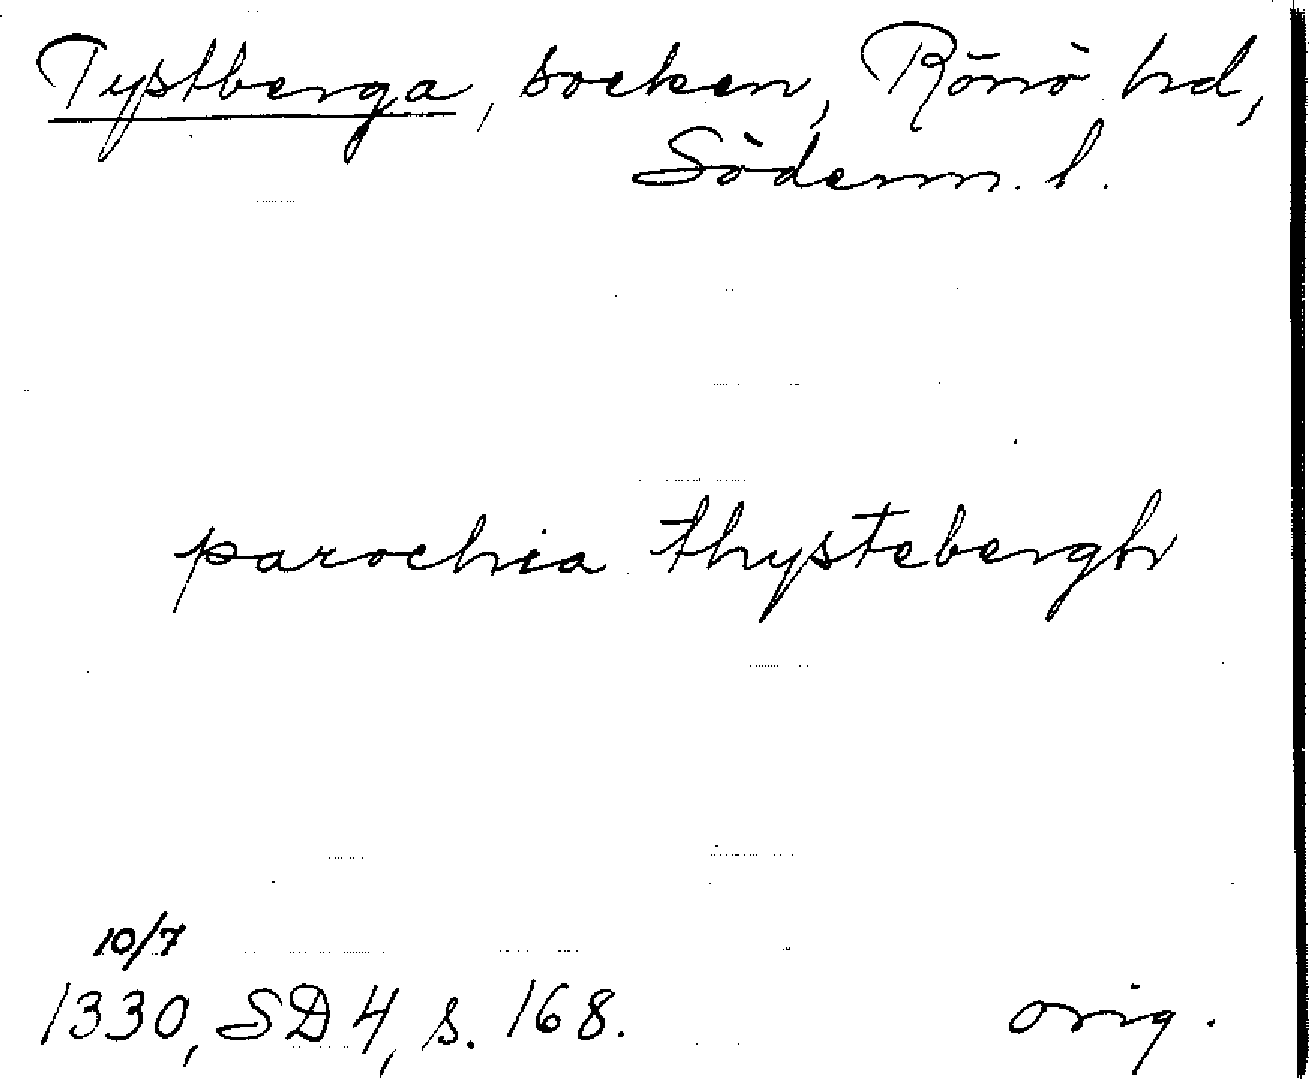 Tystberga, socken, Rönö hd,
Söderm. l.
parochia thystebergh
10/7
1330, SD 4, s. 168. orig.